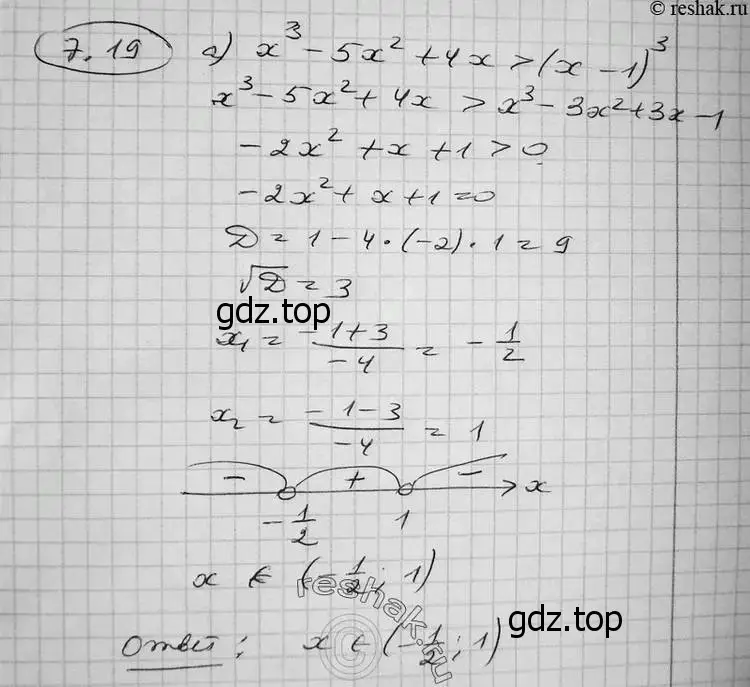 © reshak.ru
7.19 а) x³ - 5x² + 4x > (x - 1)³
x³ - 5x² + 4x > x³ - 3x² + 3x - 1
-2x² + x + 1 > 0
-2x² + x + 1 = 0
D = 1 - 4 · (-2) · 1 = 9
√D = 3
gdz.top
x₁ = (-1+3)/(-4) = -1/2
x₂ = (-1-3)/(-4) = 1
- + - x
-1/2 1
x ∈ (-1/2; 1)
reshak.ru
gdz.top
Ответ: x ∈ (-1/2; 1)